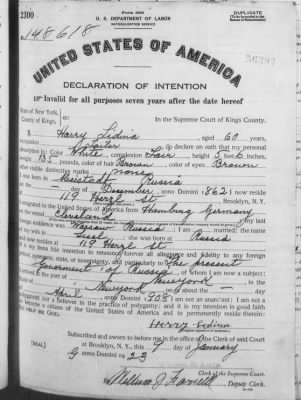 2300
Form 2203
U. S. DEPARTMENT OF LABOR
NATURALIZATION SERVICE
DUPLICATE
No. 148618
UNITED STATES OF AMERICA
DECLARATION OF INTENTION
Invalid for all purposes seven years after the date hereof
State of New York,
County of Kings,
In the Supreme Court of Kings County.
I, Harry Sidina aged 60 years,
occupation do declare on oath that my personal
description is: Color White, complexion Fair, height 5 feet inches,
weight 135 pounds, color of hair Brown color of eyes Brown
other visible distinctive marks none
Russia
day of December, anno Domini 1862 I now reside
at 119 Herzl St Brooklyn, N. Y.
I emigrated to the United States of America from Hamburg Germany
Cleveland my last
residence was Warsaw Russia I am
she was born at Russia
and now resides at 119 Herzl St
It is my bona fide intention to renounce forever all allegiance and fidelity to any foreign
prince, potentate, state, or sovereignty, and particularly to The present
Government of Russia, of whom I am now a subject;
I arrived at the port of Newyork, in the
State of Newyork on or about the — day
of April, anno Domini 1903: I am not an anarchist; I am not a
polygamist nor a believer in the practice of polygamy; and it is my intention in good faith
to become a citizen of the United States of America and to permanently reside therein:
SO HELP ME GOD.
Subscribed and sworn to before me in the office of the Clerk of said Court
at Brooklyn, N. Y., this 9 day of January
[SEAL]
anno Domini 1923
Clerk of the Supreme Court.
By William J. Deputy Clerk.